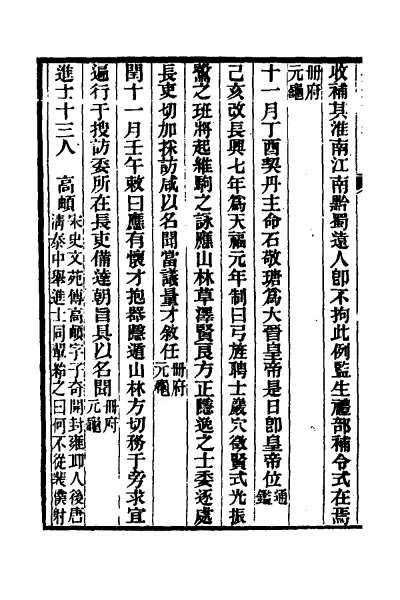 收補其淮南江南黔蜀遠人卽不拘此例監生禮部補令式在焉
冊府
元龜
十一月丁酉契丹主命石敬瑭爲大晉皇帝是日卽皇帝位通
鑑
己亥改長興七年爲天福元年制曰弓旌聘士巖穴徵賢式光振
鷺之班將起維駒之詠應山林草澤賢良方正隱逸之士委逐處
長吏切加採訪咸以名聞當議量才敘任冊府
元龜
閏十一月壬午敕曰應有懷才抱器隱遁山林方切務于旁求宜
遍行于搜訪委所在長吏備達朝旨具以名聞冊府
元龜
進士十三人 高頔宋史文苑傳高頔字子奇開封雍邱人後唐
淸泰中舉進士同輩紿之曰何不從裴僕射